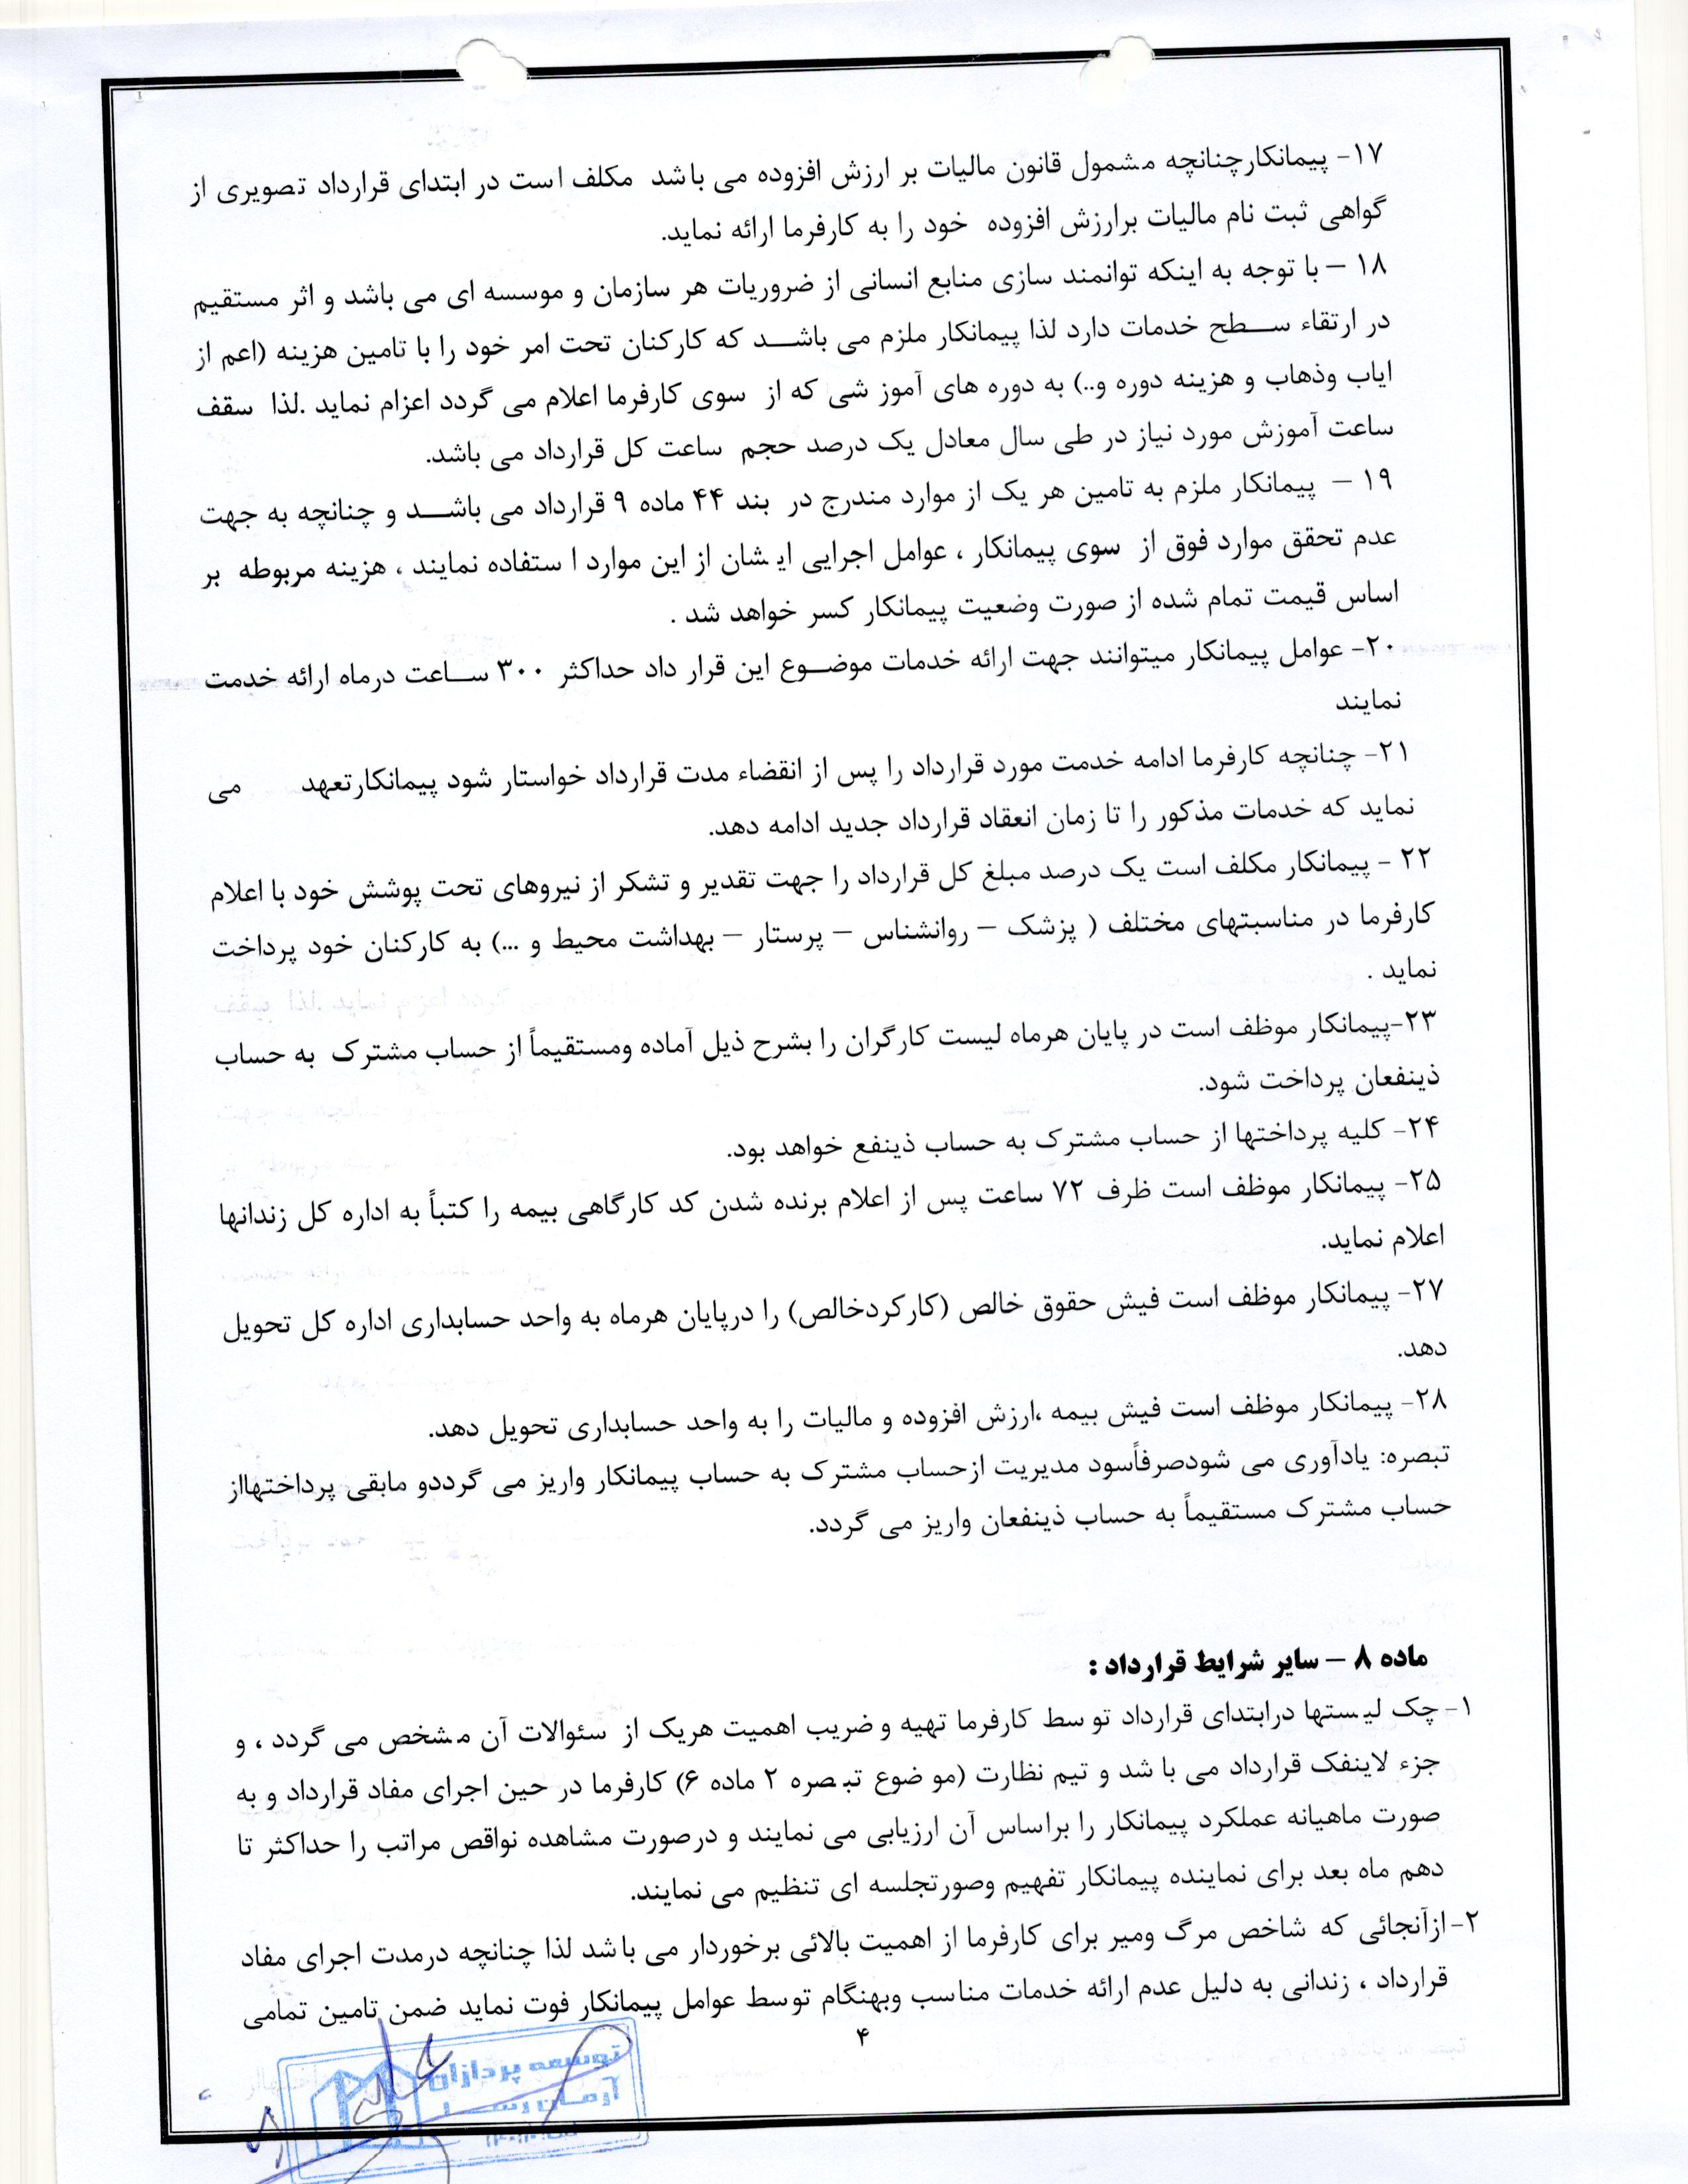 ۱۷- پیمانکارچنانچه مشمول قانون مالیات بر ارزش افزوده می باشد مکلف است در ابتدای قرارداد تصویری از
گواهی ثبت نام مالیات برارزش افزوده خود را به کارفرما ارائه نماید.
۱۸ – با توجه به اینکه توانمند سازی منابع انسانی از ضروریات هر سازمان و موسسه ای می باشد و اثر مستقیم
در ارتقاء سطح خدمات دارد لذا پیمانکار ملزم می باشد که کارکنان تحت امر خود را با تامین هزینه (اعم از
ایاب وذهاب و هزینه دوره و..) به دوره های آموز شی که از سوی کارفرما اعلام می گردد اعزام نماید .لذا سقف
ساعت آموزش مورد نیاز در طی سال معادل یک درصد حجم ساعت کل قرارداد می باشد.
۱۹ – پیمانکار ملزم به تامین هر یک از موارد مندرج در بند ۴۴ ماده ۹ قرارداد می باشد و چنانچه به جهت
عدم تحقق موارد فوق از سوی پیمانکار ، عوامل اجرایی ایشان از این موارد استفاده نمایند ، هزینه مربوطه بر
اساس قیمت تمام شده از صورت وضعیت پیمانکار کسر خواهد شد .
۲۰- عوامل پیمانکار میتوانند جهت ارائه خدمات موضوع این قرار داد حداکثر ۳۰۰ ساعت درماه ارائه خدمت
نمایند
۲۱- چنانچه کارفرما ادامه خدمت مورد قرارداد را پس از انقضاء مدت قرارداد خواستار شود پیمانکارتعهد می
نماید که خدمات مذکور را تا زمان انعقاد قرارداد جدید ادامه دهد.
۲۲ - پیمانکار مکلف است یک درصد مبلغ کل قرارداد را جهت تقدیر و تشکر از نیروهای تحت پوشش خود با اعلام
کارفرما در مناسبتهای مختلف ( پزشک – روانشناس – پرستار – بهداشت محیط و ...) به کارکنان خود پرداخت
نماید .
۲۳-پیمانکار موظف است در پایان هرماه لیست کارگران را بشرح ذیل آماده ومستقیماً از حساب مشترک به حساب
ذینفعان پرداخت شود.
۲۴- کلیه پرداختها از حساب مشترک به حساب ذینفع خواهد بود.
۲۵- پیمانکار موظف است ظرف ۷۲ ساعت پس از اعلام برنده شدن کد کارگاهی بیمه را کتباً به اداره کل زندانها
اعلام نماید.
۲۷- پیمانکار موظف است فیش حقوق خالص (کارکردخالص) را درپایان هرماه به واحد حسابداری اداره کل تحویل
دهد.
۲۸- پیمانکار موظف است فیش بیمه ،ارزش افزوده و مالیات را به واحد حسابداری تحویل دهد.
تبصره: یادآوری می شودصرفاًسود مدیریت ازحساب مشترک به حساب پیمانکار واریز می گرددو مابقی پرداختهااز
حساب مشترک مستقیماً به حساب ذینفعان واریز می گردد.
ماده ۸ – سایر شرایط قرارداد :
۱- چک لیستها درابتدای قرارداد توسط کارفرما تهیه و ضریب اهمیت هریک از سئوالات آن مشخص می گردد ، و
جزء لاینفک قرارداد می باشد و تیم نظارت (موضوع تبصره ۲ ماده ۶) کارفرما در حین اجرای مفاد قرارداد و به
صورت ماهیانه عملکرد پیمانکار را براساس آن ارزیابی می نمایند و درصورت مشاهده نواقص مراتب را حداکثر تا
دهم ماه بعد برای نماینده پیمانکار تفهیم وصورتجلسه ای تنظیم می نمایند.
۲- ازآنجائی که شاخص مرگ ومیر برای کارفرما از اهمیت بالائی برخوردار می باشد لذا چنانچه درمدت اجرای مفاد
قرارداد ، زندانی به دلیل عدم ارائه خدمات مناسب وبهنگام توسط عوامل پیمانکار فوت نماید ضمن تامین تمامی
۴
توسعه پردازان
آرمان